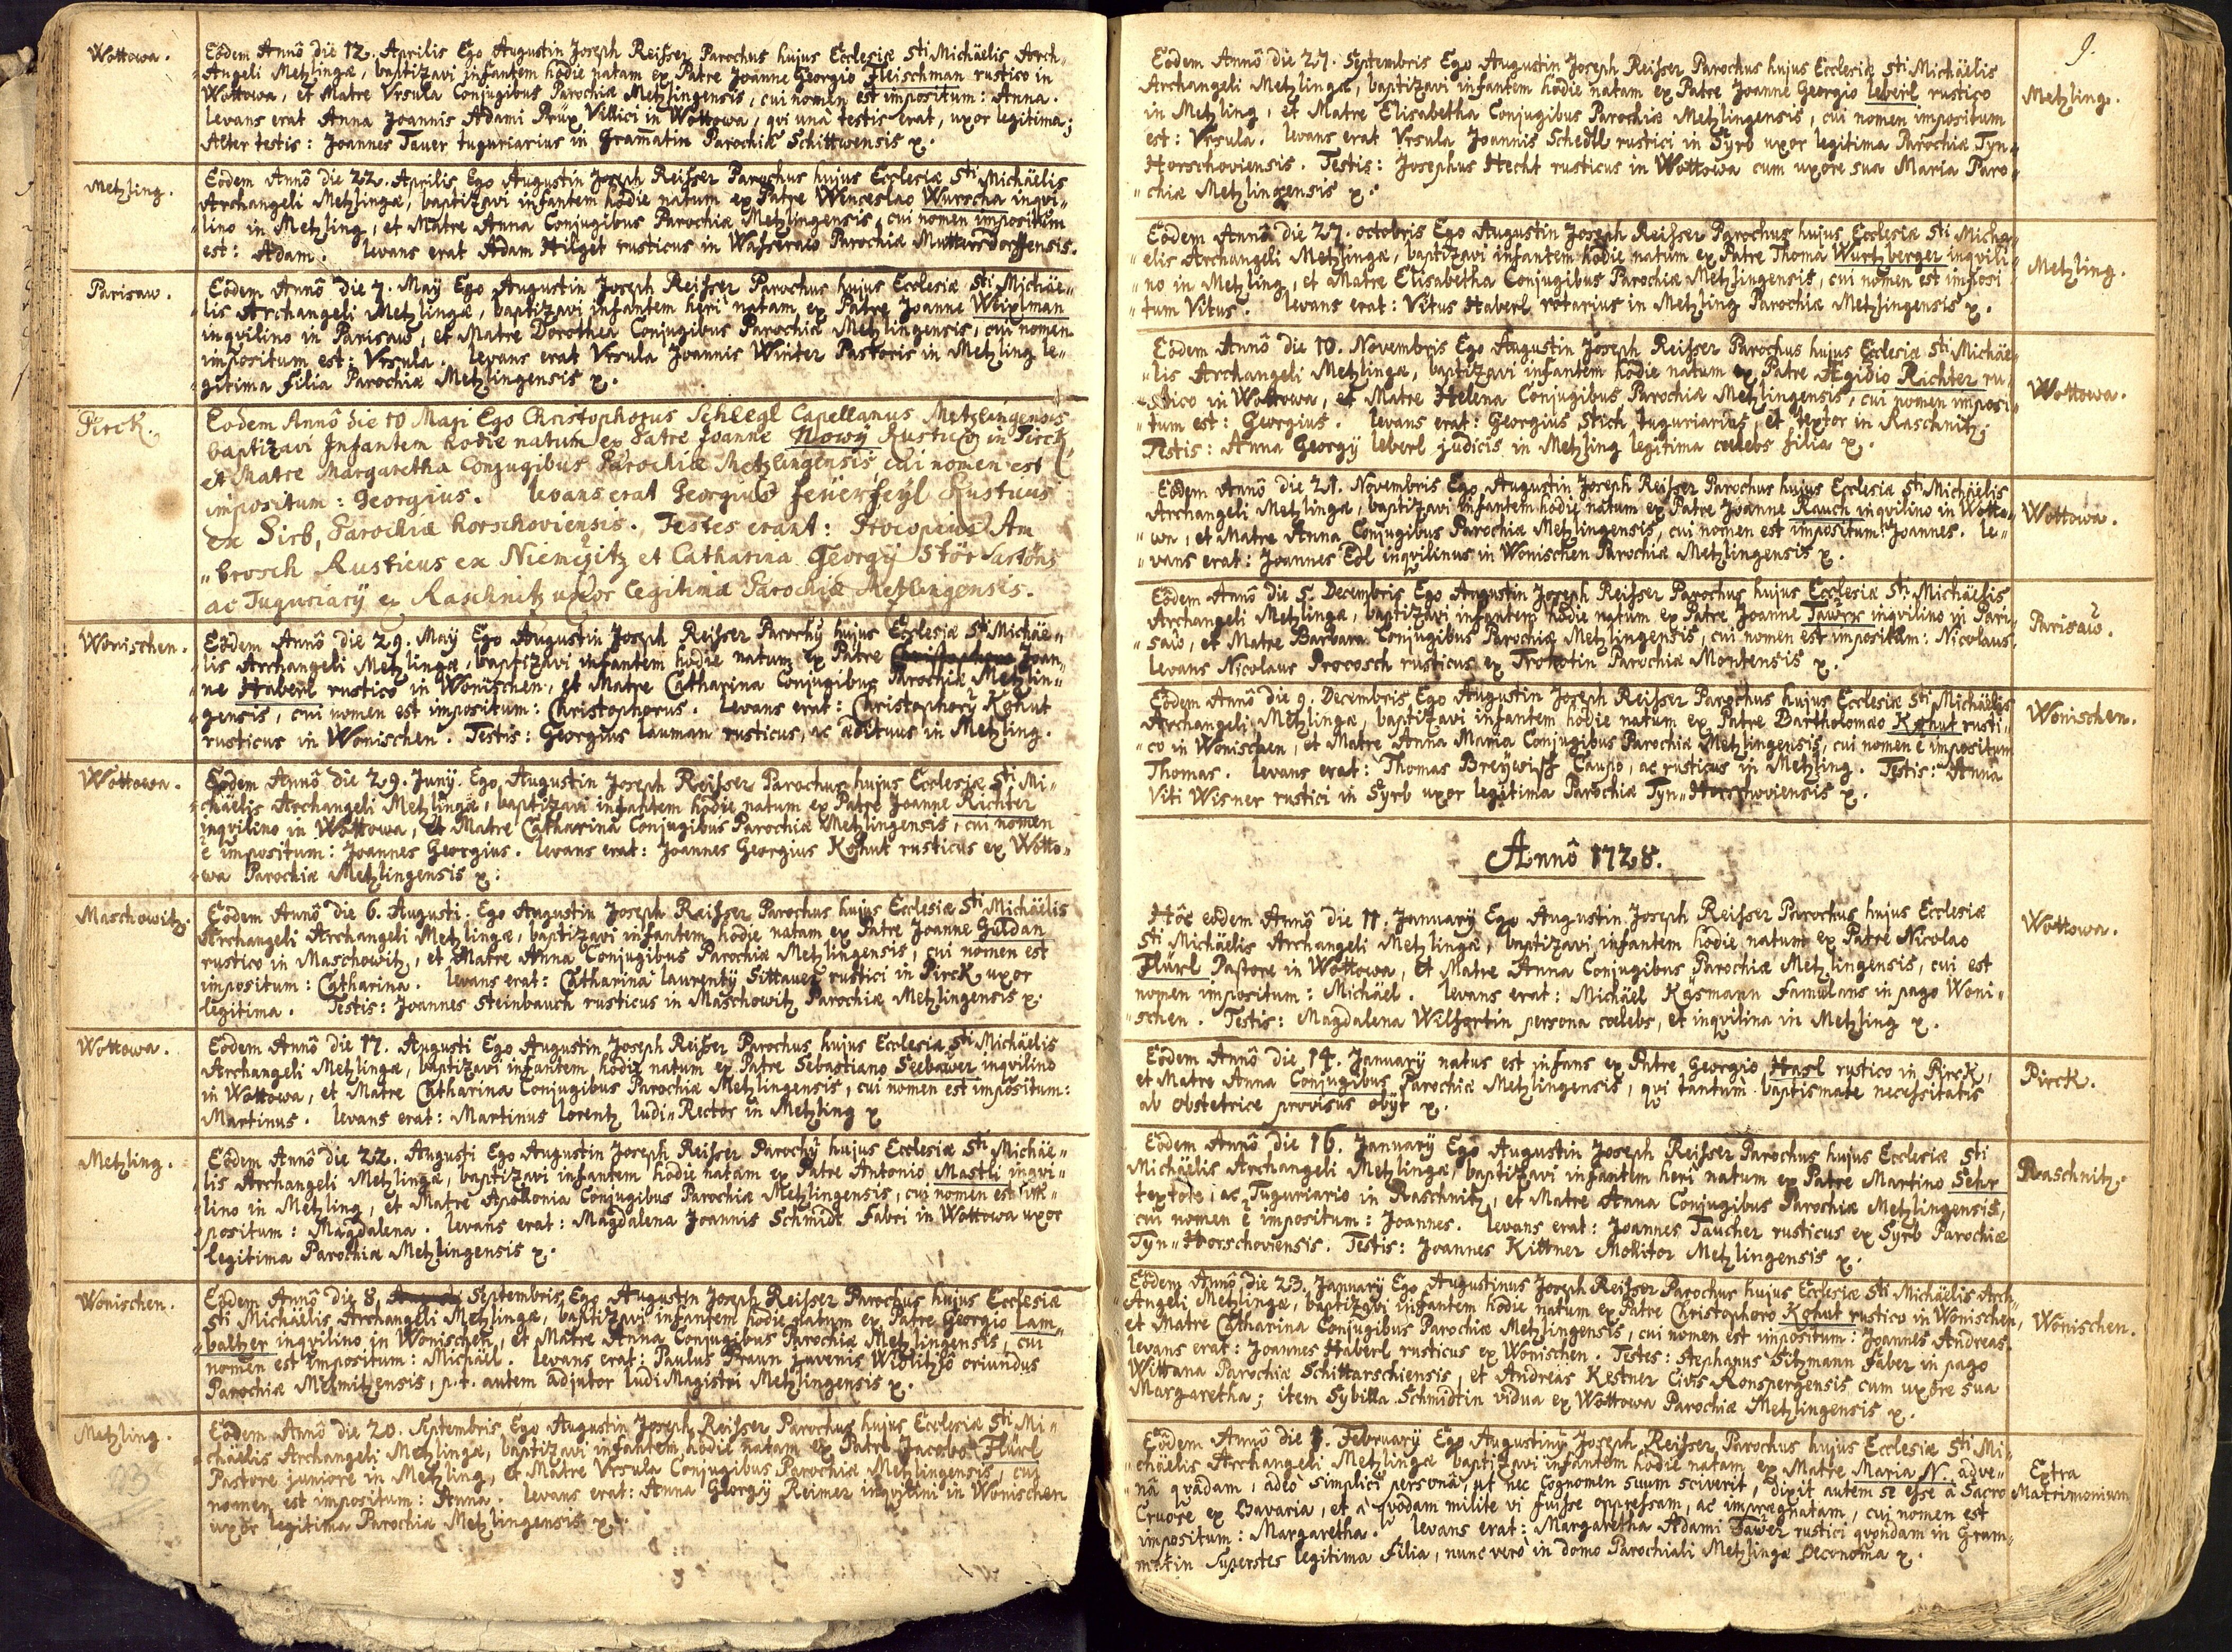 Wottowa.
Eôdem Annô die 12. Aprilis Ego Augustin Joseph Reisser Parochus hujus Ecclesiæ Sti Michäelis Arch-
Angeli Metzlingæ, baptizavi infantem hôdie natam ex Patre Joanne Georgio Fleischman rustico in
Wottowa, et Matre Vrsula Conjugibus Parochiæ Metzlingensis, cui nomen est impositum: Anna.
levans erat Anna Joannis Adami Prüx Villici in Wottowa, qvi unà testis erat, uxor legitima;
Alter testis: Joannes Tauer tuguriarius in Gramatin Parochiæ Schittwensis x.
Metzling.
Eodem Annô die 22. Aprilis Ego Augustin Joseph Reisser Parochus hujus Ecclesiæ Sti Michäelis
Archangeli Metzlingæ, baptizavi infantem hôdie natum ex Patre Wenceslao Wurscha inqvi„
„lino in Metzling, et Matre Anna Conjugibus Parochiæ Metzlingensis, cui nomen impositum
est: Adam. levans erat Adam Hilget rusticus in Wasseraw Parochiæ Muttersdorffensis.
Parisaw.
Eôdem Annô die 7. Maÿ Ego Augustin Joseph Reisser Parochus hujus Ecclesiæ Sti Michäe„
„lis Archangeli Metzlingæ, baptizavi infantem heri natam ex Patre Joanne Weixlman
inqvilino in Parisaw, et Matre Dorothea Conjugibus Parochiæ Metzlingensis, cui nomen
impositum est: Vrsula. levans erat Vrsula Joannis Winter Pastoris in Metzling le„
„gitima filia Parochiæ Metzlingensis x.
Pirck.
Eodem Annô die 10 Maji Ego Christophorus Schlegl Capellanus Metzlingensis
baptizavi Infantem hodie natum ex Patre Joanne Nowÿ Rustico in Pirck
et Matre Margaretha Conjugibus Parochiæ Metzlingensis cui nomen est
impositum: Georgius. levans erat Georgius feüerfeyl Rusticus
ex Sirb, Parochiæ horschoviensis. Testes erant: Procopius Am
„brosch Rusticus ex Niemeÿitz et Catharina Georgÿ Stör
ac Tuguriarÿ ex Raschnitz uxor Legitima Parochiæ Metzlingensis.
Wonischen.
Eôdem Annô die 29. Maÿ Ego Augustin Joseph Reisser Parochÿ hujus Ecclesiæ Sti Michäe„
„lis Archangeli Metzlingæ, baptizavi infantem hodie natum ex Patre Christophoro Joan„
„ne Haberl rustico in Wonischen, et Matre Catharina Conjugibus Parochiæ Metzlin„
„gensis, cui nomen est impositum: Christophorus. levans erat: Christophorÿ Kohut
rusticus in Wonischen. Testis: Georgius lauman rusticus, ac ædituus in Metzling.
Wottowa.
Eôdem Annô die 29. Junÿ. Ego Augustin Joseph Reisser Parochus hujus Ecclesiæ Sti Mi„
„chäelis Archangeli Metzlingæ, baptizavi infantem hodie natum ex Patre Joanne Richter
inqvilino in Wottowa, et Matre Catharina Conjugibus Parochiæ Metzlingensis, cui nomen
ē impositum: Joannes Georgius. levans erat: Joannes Georgius Kohut rusticus ex Wotto„
„wa Parochiæ Metzlingensis x.
Maschowitz.
Eôdem Annô die 6. Augusti. Ego Augustin Joseph Reisser Parochus hujus Ecclesiæ Sti Michäelis
Archangeli Archangeli Metzlingæ, baptizavi infantem hodie natam ex Patre Joanne Güldan
rustico in Maschowitz, et Matre Anna Conjugibus Parochiæ Metzlingensis, cui nomen est
impositum: Catharina. levans erat: Catharina laurentÿ Sittauer rustici in Pirck uxor
legitima. Testis: Joannes Steinbauch rusticus in Maschowitz Parochiæ Metzlingensis x.
Wottowa.
Eôdem Annô die 17. Augusti Ego Augustin Joseph Reisser Parochus hujus Ecclesiæ Sti Michäelis
Archangeli Metzlingæ, baptizavi infantem hodie natum ex Patre Sebastiano Seebawer inqvilino
in Wottowa, et Matre Catharina Conjugibus Parochiæ Metzlingensis, cui nomen est impositum:
Martinus. levans erat: Martinus lorentz ludi„Rector in Metzling x
Metzling.
Eôdem Annô die 22. Augusti Ego Augustin Joseph Reisser Parochÿ hujus Ecclesiæ Sti Michäe„
lis Archangeli Metzlingæ, baptizavi infantem hodie natam ex Patre Antonio Mastli inqvi„
„lino in Metzling, et Matre Apollonia Conjugibus Parochiæ Metzlingensis, cui nomen est im„
„positum: Magdalena. levans erat: Magdalena Joannis Schmidt Fabri in Wottowa uxor
legitima Parochiæ Metzlingensis x.
Wonischen.
Eôdem Annô die 8. Septembris Ego Augustin Joseph Reisser Parochus hujus Ecclesiæ
Sti Michäelis Archangeli Metzlingæ, baptizavi infantem hodie natum ex Patre Georgio lam„
„baltzer inqvilino in Wonischen, et Matre Anna Conjugibus Parochiæ Metzlingensis, cui
nomen est impositum: Michäel. levans erat: Paulus Praun juvenis Widlitzio oriundus
Parochiæ Melmitzensis, p.t. autem adjutor ludi Magistri Metzlingensis x.
Metzling.
Eôdem Annô die 20. Septembris Ego Augustin Joseph Reisser Parochus hujus Ecclesiæ Sti Mi„
chäelis Archangeli Metzlingæ, baptizavi infantem hodie natam ex Patre Jacobo Flürl
Pastore juniore in Metzling, et Matre Vrsula Conjugibus Parochiæ Metzlingensis, cui
nomen est impositum: Anna. levans erat: Anna Georgÿ Reimer inqvilini in Wonischen
uxor legitima Parochia Metzlingensis x.
9.
Eodem Annô die 27. Septembris Ego Augustin Joseph Reisser Parochus hujus Ecclesiæ Sti Michäelis
Archangeli Metzlingæ, baptizavi infantem hodie natam ex Patre Joanne Georgio leberl rustico
in Metzling, et Matre Elisabetha Conjugibus Parochiæ Metzlingensis, cui nomen impositum
est: Vrsula. levans erat Vrsula Joannis Schedl rustici in Syrb uxor legitima Parochiæ Tyn„
Horschoviensis. Testis: Josephus Hecht rusticus in Wottowa cum uxore sua Maria Paro„
„chiæ Metzlingensis x.
Metzling.
Eôdem Annô die 27. octobris Ego Augustin Joseph Reisser Parochus hujus Ecclesiæ Sti Micha„
„elis Archangeli Metzlingæ, baptizavi infantem hodie natum ex Patre Thoma Wurtzberger inqvili„
„no in Metzling, et Matre Elisabetha Conjugibus Parochiæ Metzlingensis, cui nomen est imposi
„tum Vitus. levans erat: Vitus Haberl rotarius in Metzling Parochiæ Metzlingensis x.
Metzling.
Eôdem Annô die 10. Novembris Ego Augustin Joseph Reisser Parochus hujus Ecclesiæ Sti Michäe„
„lis Archangeli Metzlingæ, baptizavi infantem hodie natum ex Patre Ægidio Richter ru„
„stico in Wottowa, et Matre Helena Conjugibus Parochiæ Metzlingensis, cui nomen imposi„
„tum est: Georgius. levans erat: Georgius Stich tuguriarius, et textor in Raschnitz.
Testis: Anna Georgÿ leberl judicis in Metzling legitima cœlebs filia x.
Wottowa.
Eôdem Annô die 21. Novembris Ego Augustin Joseph Reisser Parochus hujus Ecclesiæ Sti Michäelis
Archangeli Metzlingæ, baptizavi infantem hodie natum ex Patre Joanne Rauch inqvilino in Wotto„
„wa, et Matre Anna Conjugibus Parochiæ Metzlingensis, cui nomen est impositum: Joannes. le„
„vans erat: Joannes Edl inqvilinus in Wonischen Parochiæ Metzlingensis x.
Wottowa.
Eôdem Annô die 5. Decembris Ego Augustin Joseph Reisser Parochus hujus Ecclesiæ Sti Michäelis
Archangeli Metzlingæ, baptizavi infantem hodie natum ex Patre Joanne Tawrx inqvilino in Pari„
„saw, et Matre Barbara Conjugibus Parochiæ Metzlingensis, cui nomen est impositum: Nicolaus.
levans Nicolaus Procosch rusticus ex Trohotin Parochiæ Montensis x.
Parisaw.
Eôdem Annô die 9. Decembris Ego Augustin Joseph Reisser Parochus hujus Ecclesiæ Sti Michäelis
Archangeli Metzlingæ, baptizavi infantem hodie natum ex Patre Bartholomæo Kohut rusti„
„co in Wonischen, et Matre Anna Maria Conjugibus Parochiæ Metzlingensis, cui nomen ē impositum
Thomas. levans erat: Thomas Breÿwiss Caupo, ac rusticus in Metzling. Testis: Anna
Viti Wisner rustici in Syrb uxor legitima Parochiæ Tyn„Horschoviensis x.
Wonischen.
Annô 1728.
Hôc eodem Annô die 11. Januarÿ Ego Augustin Joseph Reisser Parochus hujus Ecclesiæ
Sti Michäelis Archangeli Metzlingæ, baptizavi infantem hodie natum ex Patre Nicolao
Flürl Pastore in Wottowa, et Matre Anna Conjugibus Parochiæ Metzlingensis, cui est
nomen impositum: Michäel. levans erat: Michäel Käsmann Famulans in pago Woni„
„schen. Testis: Magdalena Welfertin persona cœlebs, et inqvilina in Metzling x.
Wottowa.
Eôdem Annô die 14. Januarÿ natus est infans ex Patre Georgio Hasl rustico in Pirck,
et Matre Anna Conjugibus Parochiæ Metzlingensis, qvi tantùm baptismate necessitatis
ab obstetrice provisus obÿt x.
Pirck.
Eôdem Annô die 16. Januarÿ Ego Augustin Joseph Reisser Parochus hujus Ecclesiæ Sti
Michäelis Archangeli Metzlingæ, baptizavi infantem heri natum ex Patre Martino Sehr
textore, ac Tuguriario in Raschnitz, et Matre Anna Conjugibus Parochiæ Metzlingensis,
cui nomen ē impositum: Joannes. levans erat: Joannes Taucher rusticus ex Syrb Parochiæ
Tyn„Horschoviensis. Testis: Joannes Kittner Molitor Metzlingensis x.
Raschnitz.
Eôdem Annô die 23. Januarÿ Ego Augustinus Joseph Reisser Parochus hujus Ecclesiæ Sti Michäelis Arch„
„Angeli Metzlingæ, baptizavi infantem hodie natum ex Patre Christophoro Kohut rustico in Wonischen,
et Matre Catharina Conjugibus Parochiæ Metzlingensis, cui nomen est impositum: Joannes Andreas.
levans erat: Joannes Haberl rusticus ex Wonischen. Testes: Stephanus Sitzmann faber in pago
Wittana Parochiæ Schittarschiensis, et Andreas Kestner Civis Ronspergensis cum uxore sua
Margaretha; item Sybilla Schmidtin vidua ex Wottowa Parochiæ Metzlingensis x.
Wonischen.
Eôdem Annô die Februarÿ Ego Augustinÿ Joseph Reisser Parochus hujus Ecclesiæ Sti Mi„
„chäelis Archangeli Metzlingæ baptizavi infantem hodie natam ex Matre Maria N. adve„
„nâ qvâdam, adeò simplici personâ, ut nec Cognomen suum sciverit, dixit autem se esse à Sacro
Cruore ex Bavaria, et à qvôdam milite vi fuisse oppressam, ac imprægnatam, cui nomen est
impositum: Margaretha. levans erat: Margaretha Adami Tawer rustici qvondam in Gram„
matin superstes legitima filia, nunc verò in domo Parochiali Metzlingæ œconoma x.
Extra
Matrimonium